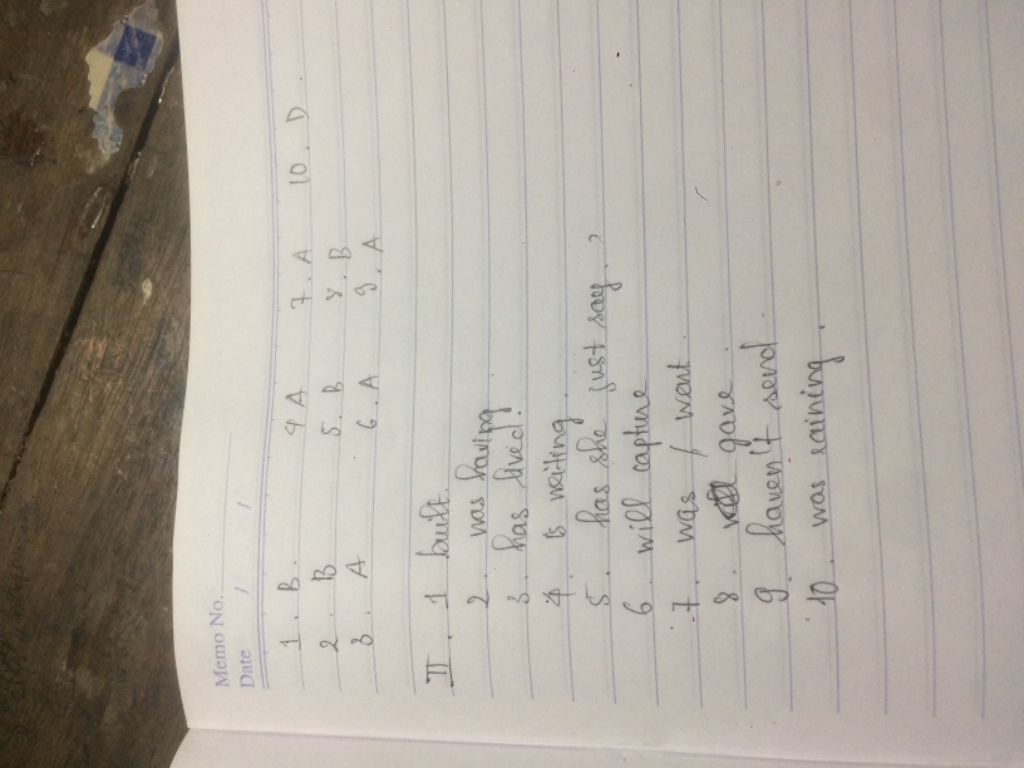 Memo No.
Date / /
1. B. 4 A 7. A 10. D.
2. B 5. B 8. B
3. A 6. A 9. A
II. 1 built.
2. was having
3. has lived.
4. is writing.
5. has she just say.?
6. will capture
7. was / went.
8. gave.
9. haven't send.
10. was raining.